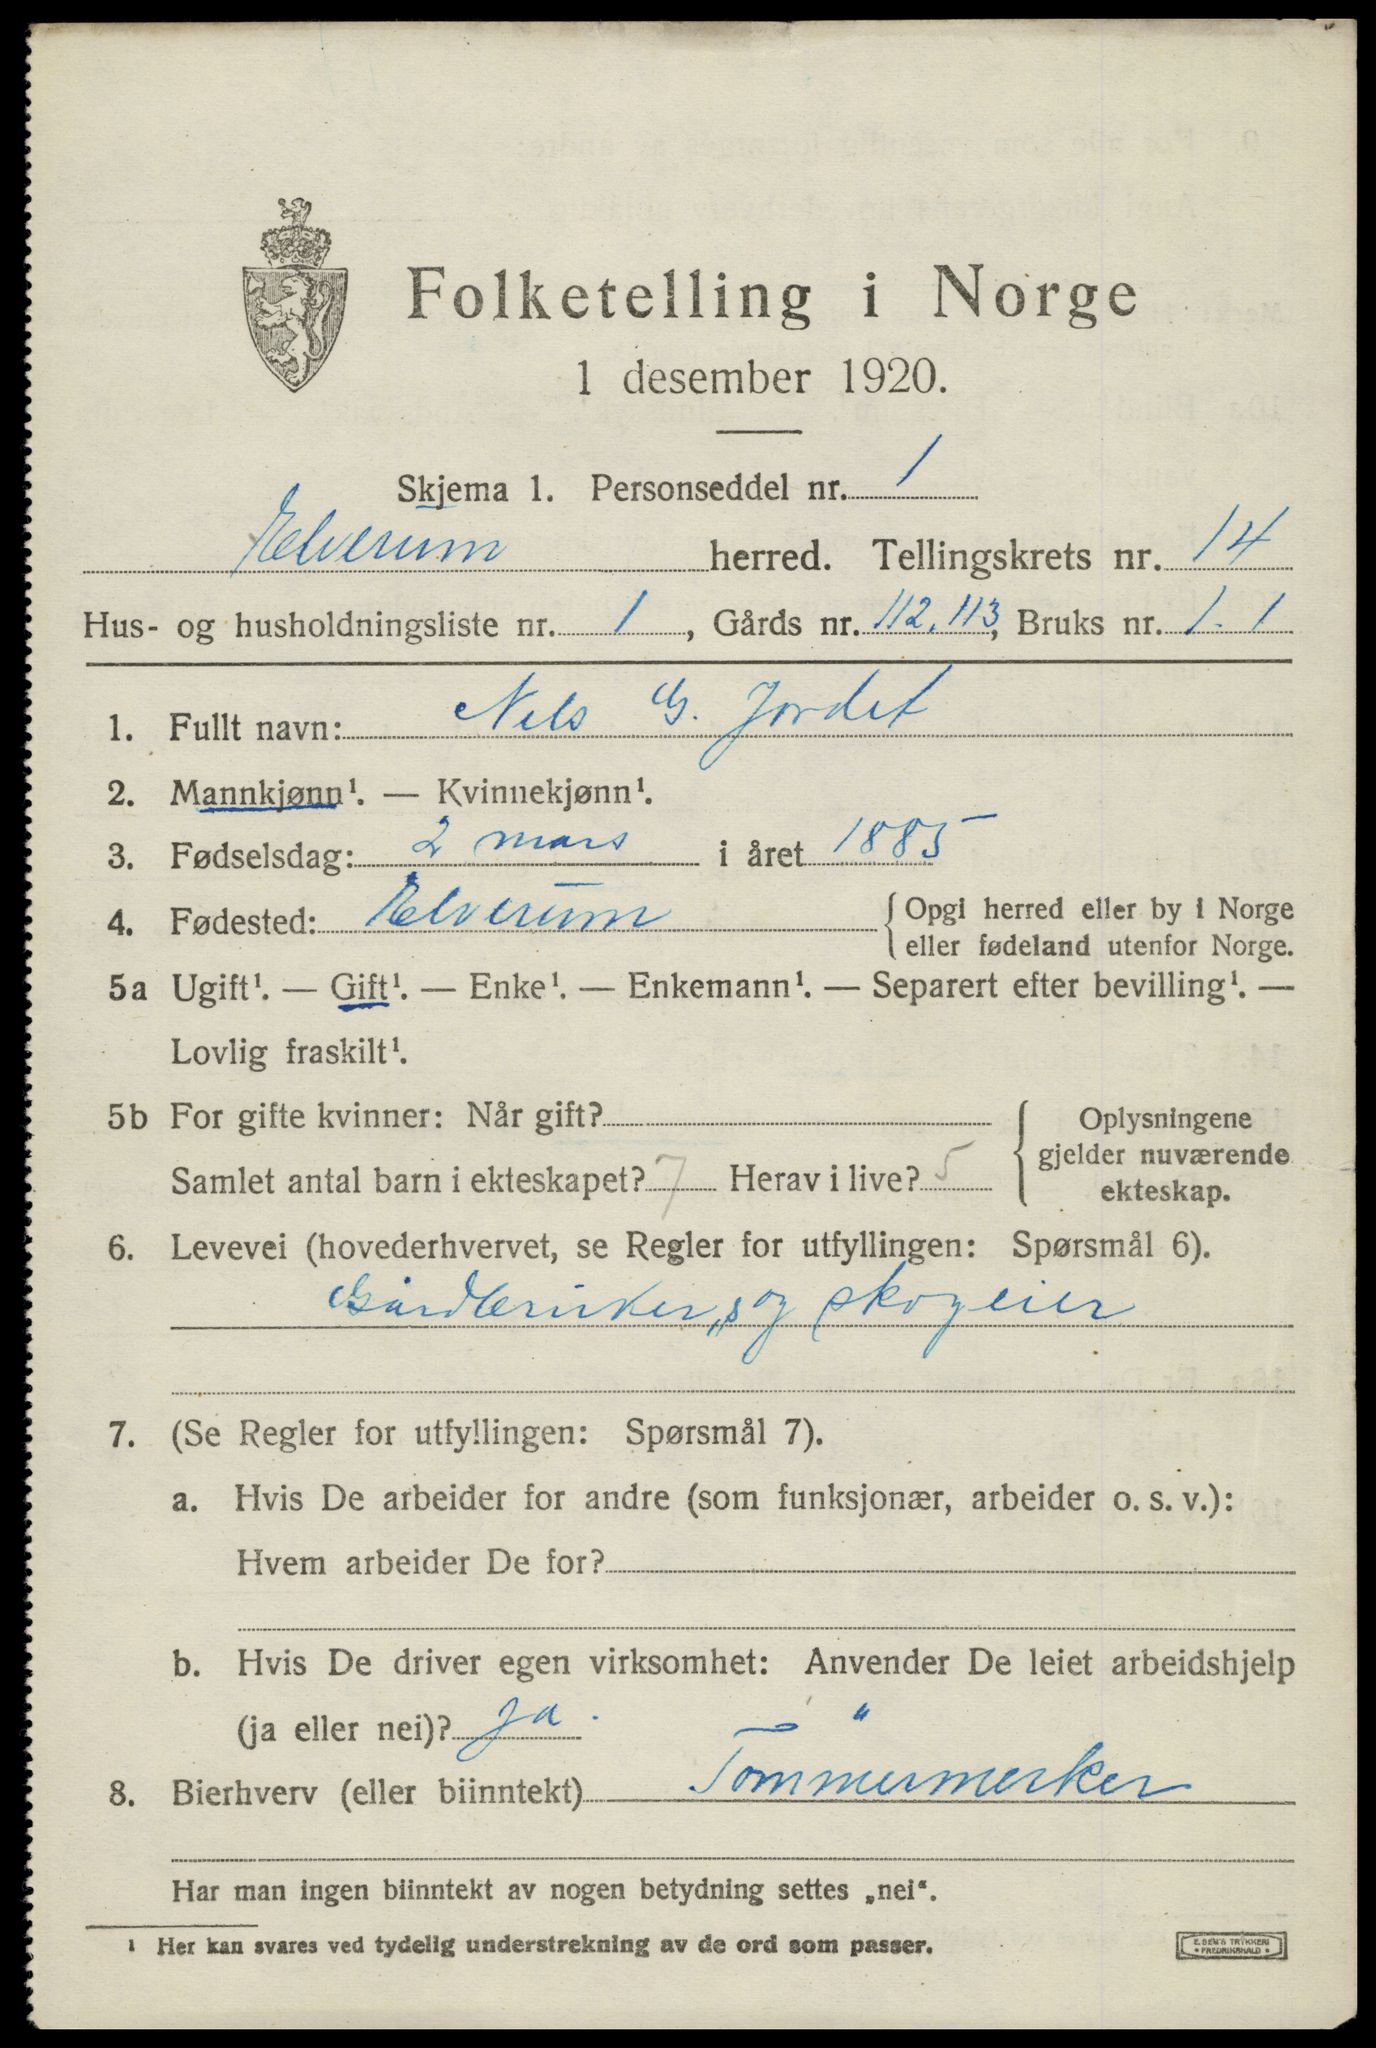 Folketelling i Norge
1 desember 1920.
Skjema 1. Personseddel nr. 1
Elverum herred. Tellingskrets nr. 14
Hus- og husholdningsliste nr. 1, Gårds nr. 112, 113, Bruks nr. 1. 1
1. Fullt navn: Nils G. Jordet
2. Mannkjønn¹. — Kvinnekjønn¹.
3. Fødselsdag: 2 mars i året 1885
4. Fødested: Elverum {Opgi herred eller by i Norge
eller fødeland utenfor Norge.
5a Ugift¹. — Gift¹. — Enke¹. — Enkemann¹. — Separert efter bevilling¹. —
Lovlig fraskilt¹.
5b For gifte kvinner: Når gift? { Oplysningene
gjelder nuværende
Samlet antal barn i ekteskapet? 7 Herav i live? 5 ekteskap.
6. Levevei (hovederhvervet, se Regler for utfyllingen: Spørsmål 6).
Gårdbruker, og skogeier
7. (Se Regler for utfyllingen: Spørsmål 7).
a. Hvis De arbeider for andre (som funksjonær, arbeider o. s. v.):
Hvem arbeider De for?
b. Hvis De driver egen virksomhet: Anvender De leiet arbeidshjelp
(ja eller nei)? ja.
8. Bierhverv (eller biinntekt) Tømmermerker
Har man ingen biinntekt av nogen betydning settes „nei“.
¹ Her kan svares ved tydelig understrekning av de ord som passer.
E. SEM'S TRYKKERI
• FREDRIKSHALD •